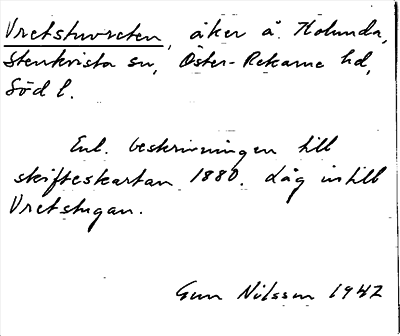 Vretstuvreten, åker å Holunda,
Stenkvista sn, Öster-Rekarne hd,
Södl.
Enl. beskrivningen till
skifteskartan 1880. Låg intill
Vretstugan.
Gun Nilsson 1947